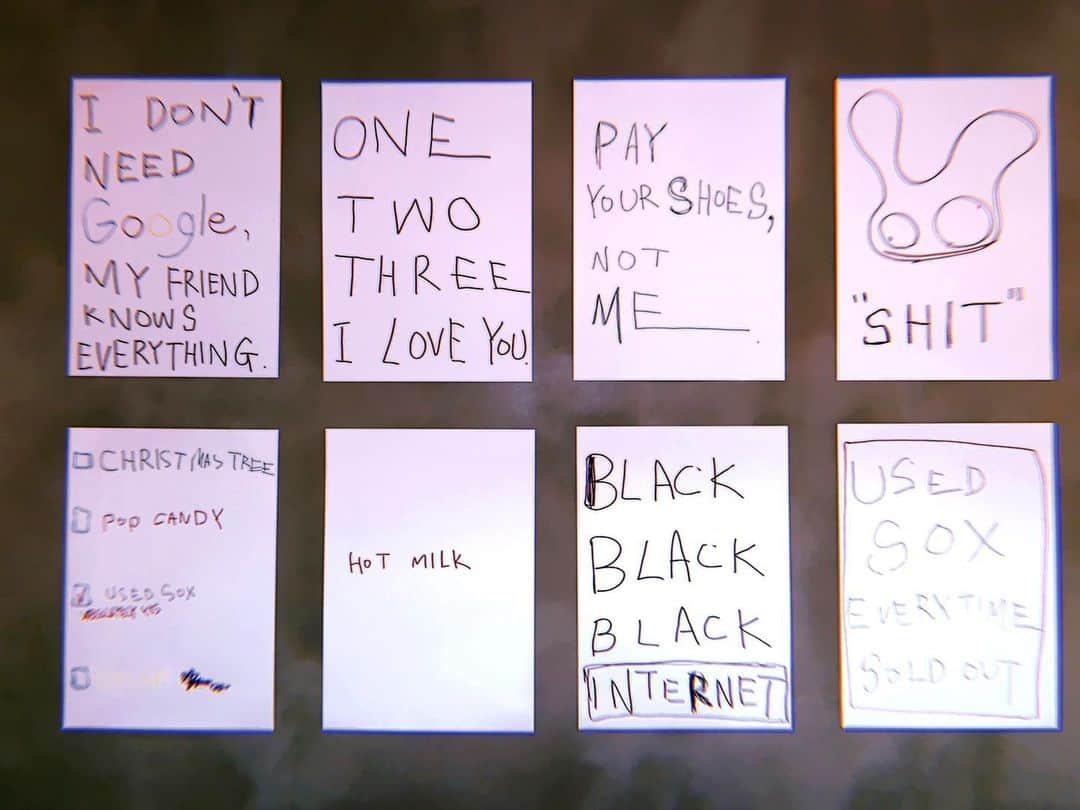 I DON'T
NEED
Google,
MY FRIEND
KNOWS
EVERYTHING.
ONE
TWO
THREE
I LOVE YOU.
PAY
YOUR SHOES,
NOT
ME
"SHIT"
CHRISTMAS TREE
POP CANDY
USED SOX
HOT MILK
BLACK
BLACK
BLACK
INTERNET
USED
SOX
EVERYTIME
SOLD OUT